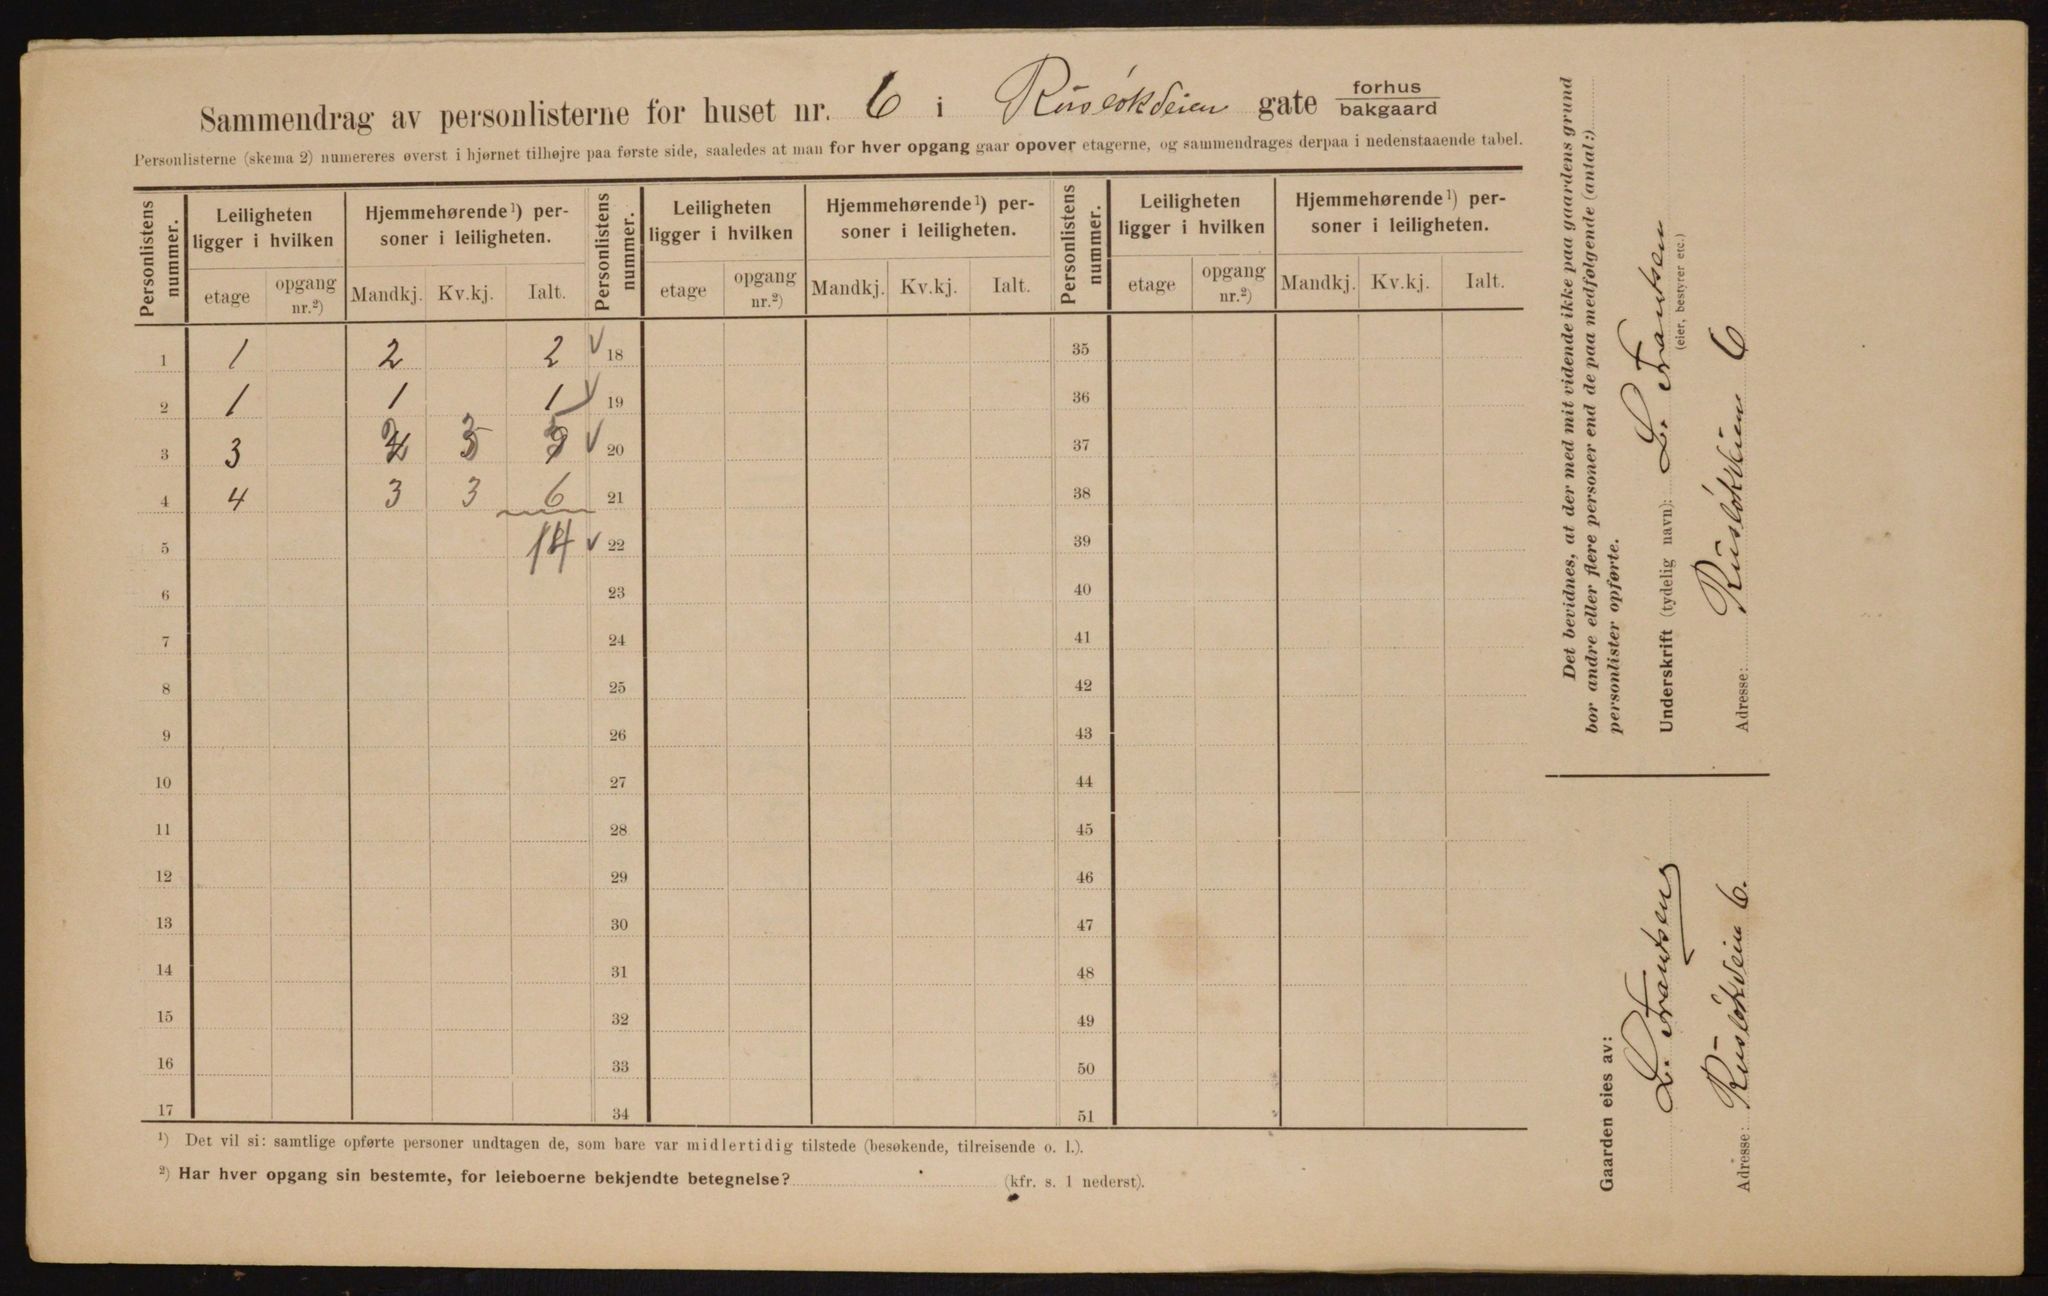 Sammendrag av personlisterne for huset nr. 6 i Ruseløkveien gate forhus / bakgaard
Personlisterne (skema 2) numereres øverst i hjørnet tilhøjre paa første side, saaledes at man for hver opgang gaar opover etagerne, og sammendrages derpaa i nedenstaaende tabel.
Personlistens nummer. Leiligheten ligger i hvilken Hjemmehørende ¹) personer i leiligheten. Personlistens nummer. Leiligheten ligger i hvilken Hjemmehørende ¹) personer i leiligheten. Personlistens nummer. Leiligheten ligger i hvilken Hjemmehørende ¹) personer i leiligheten.
etage opgang nr.²) Mandkj. Kv.kj. Ialt. etage opgang nr.²) Mandkj. Kv.kj. Ialt. etage opgang nr.²) Mandkj. Kv.kj. Ialt.
1 1 2 2 √ 18 35
2 1 1 1 √ 19 36
3 3 2 3 5 √ 20 37
4 4 3 3 6 21 38
5 14 √ 22 39
6 23 40
7 24 41
8 25 42
9 26 43
10 27 44
11 28 45
12 29 46
13 30 47
14 31 48
15 32 49
16 33 50
17 34 51
¹) Det vil si: samtlige opførte personer undtagen de, som bare var midlertidig tilstede (besøkende, tilreisende o. l.).
²) Har hver opgang sin bestemte, for leieboerne bekjendte betegnelse? (kfr. s. 1 nederst).
Det bevidnes, at der med mit vidende ikke paa gaardens grund
bor andre eller flere personer end de paa medfølgende (antal:)
personlister opførte.
Underskrift (tydelig navn): L. Frantsen
(eier, bestyrer etc.)
Adresse: Ruseløkveien 6
Gaarden eies av:
L. Frantsen
Adresse: Ruseløkveien 6.